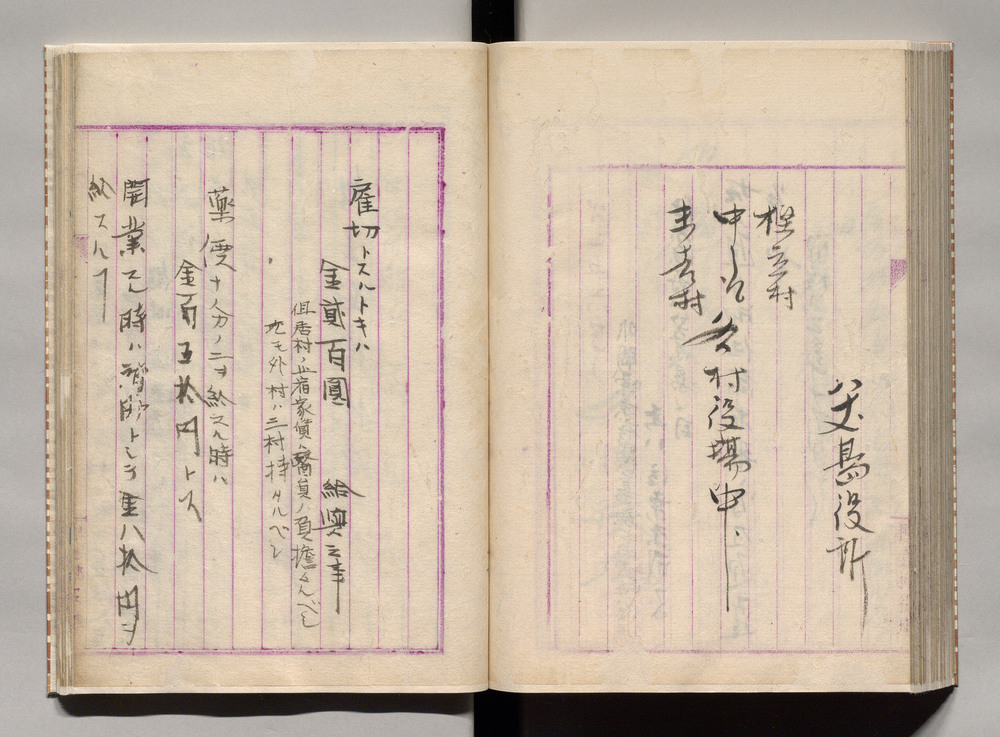 八丈嶌役所
樫立村
中之郷
末吉村
各村役場中
雇切トスルトキハ
金貳百圓 給與之事
但居村ノ止宿家賃ハ醫員ノ負擔タルベシ
尤モ外村ハ三村持タルベシ
薬價十人分ノ二ヲ給スル時ハ
金百五拾円トス
開業スル時ハ補助トシテ金八拾円ヲ
給スルヿ